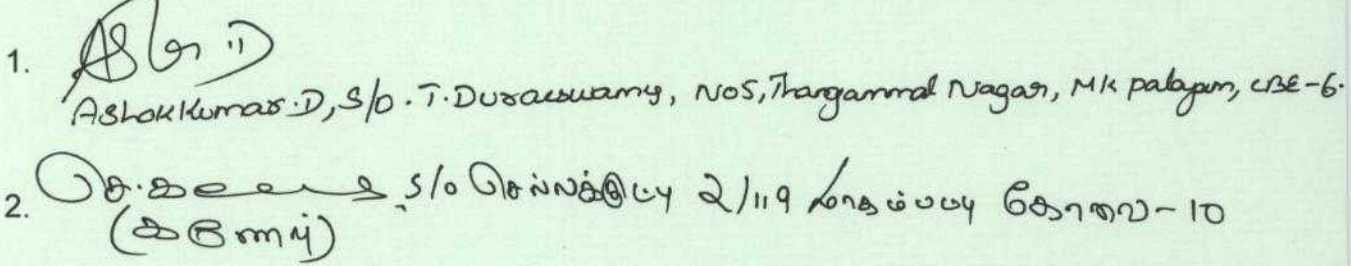 1.
Ashokkumar.D, S/o. T. Duraiswamy, No5, Thangammal Nagar, MK palayam, CBE-6.
2. செ. S/o செல்லக்குட்டி 2/119 மாதம்பட்டி கோவை-10